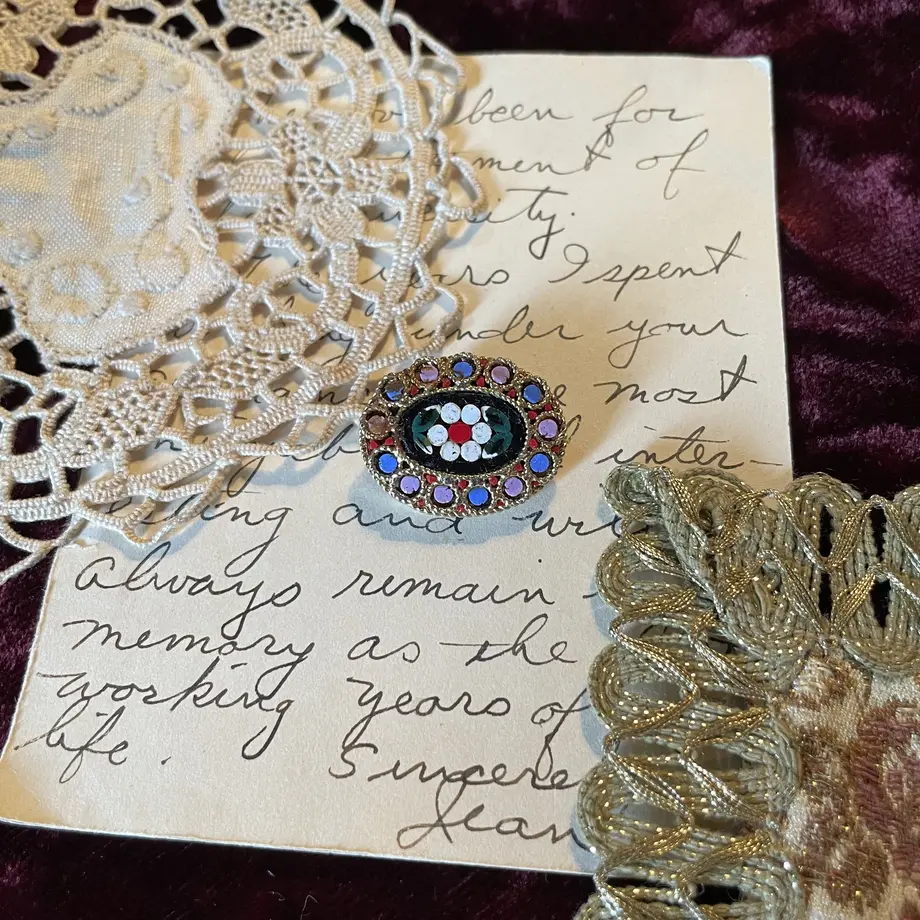 been for
of
years I spent
under your
most
inter-
esting and
always remain
memory as the
working years of
life.
Sincere
Jean